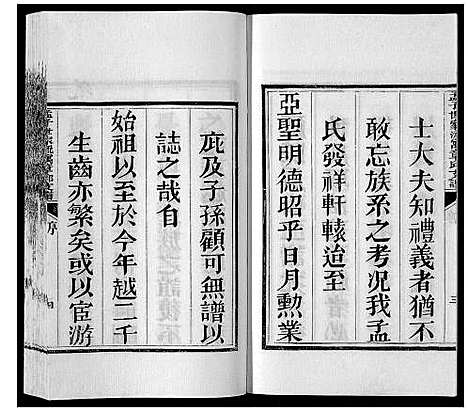 士大夫知禮義者猶不
敢忘族系之考況我孟
氏發祥軒轅迨至
亞聖明德昭乎日月勲業
三
庇及子孫顧可無譜以
誌之哉自
始祖以至於今年越二千
生齒亦繁矣或以宦游
序
四